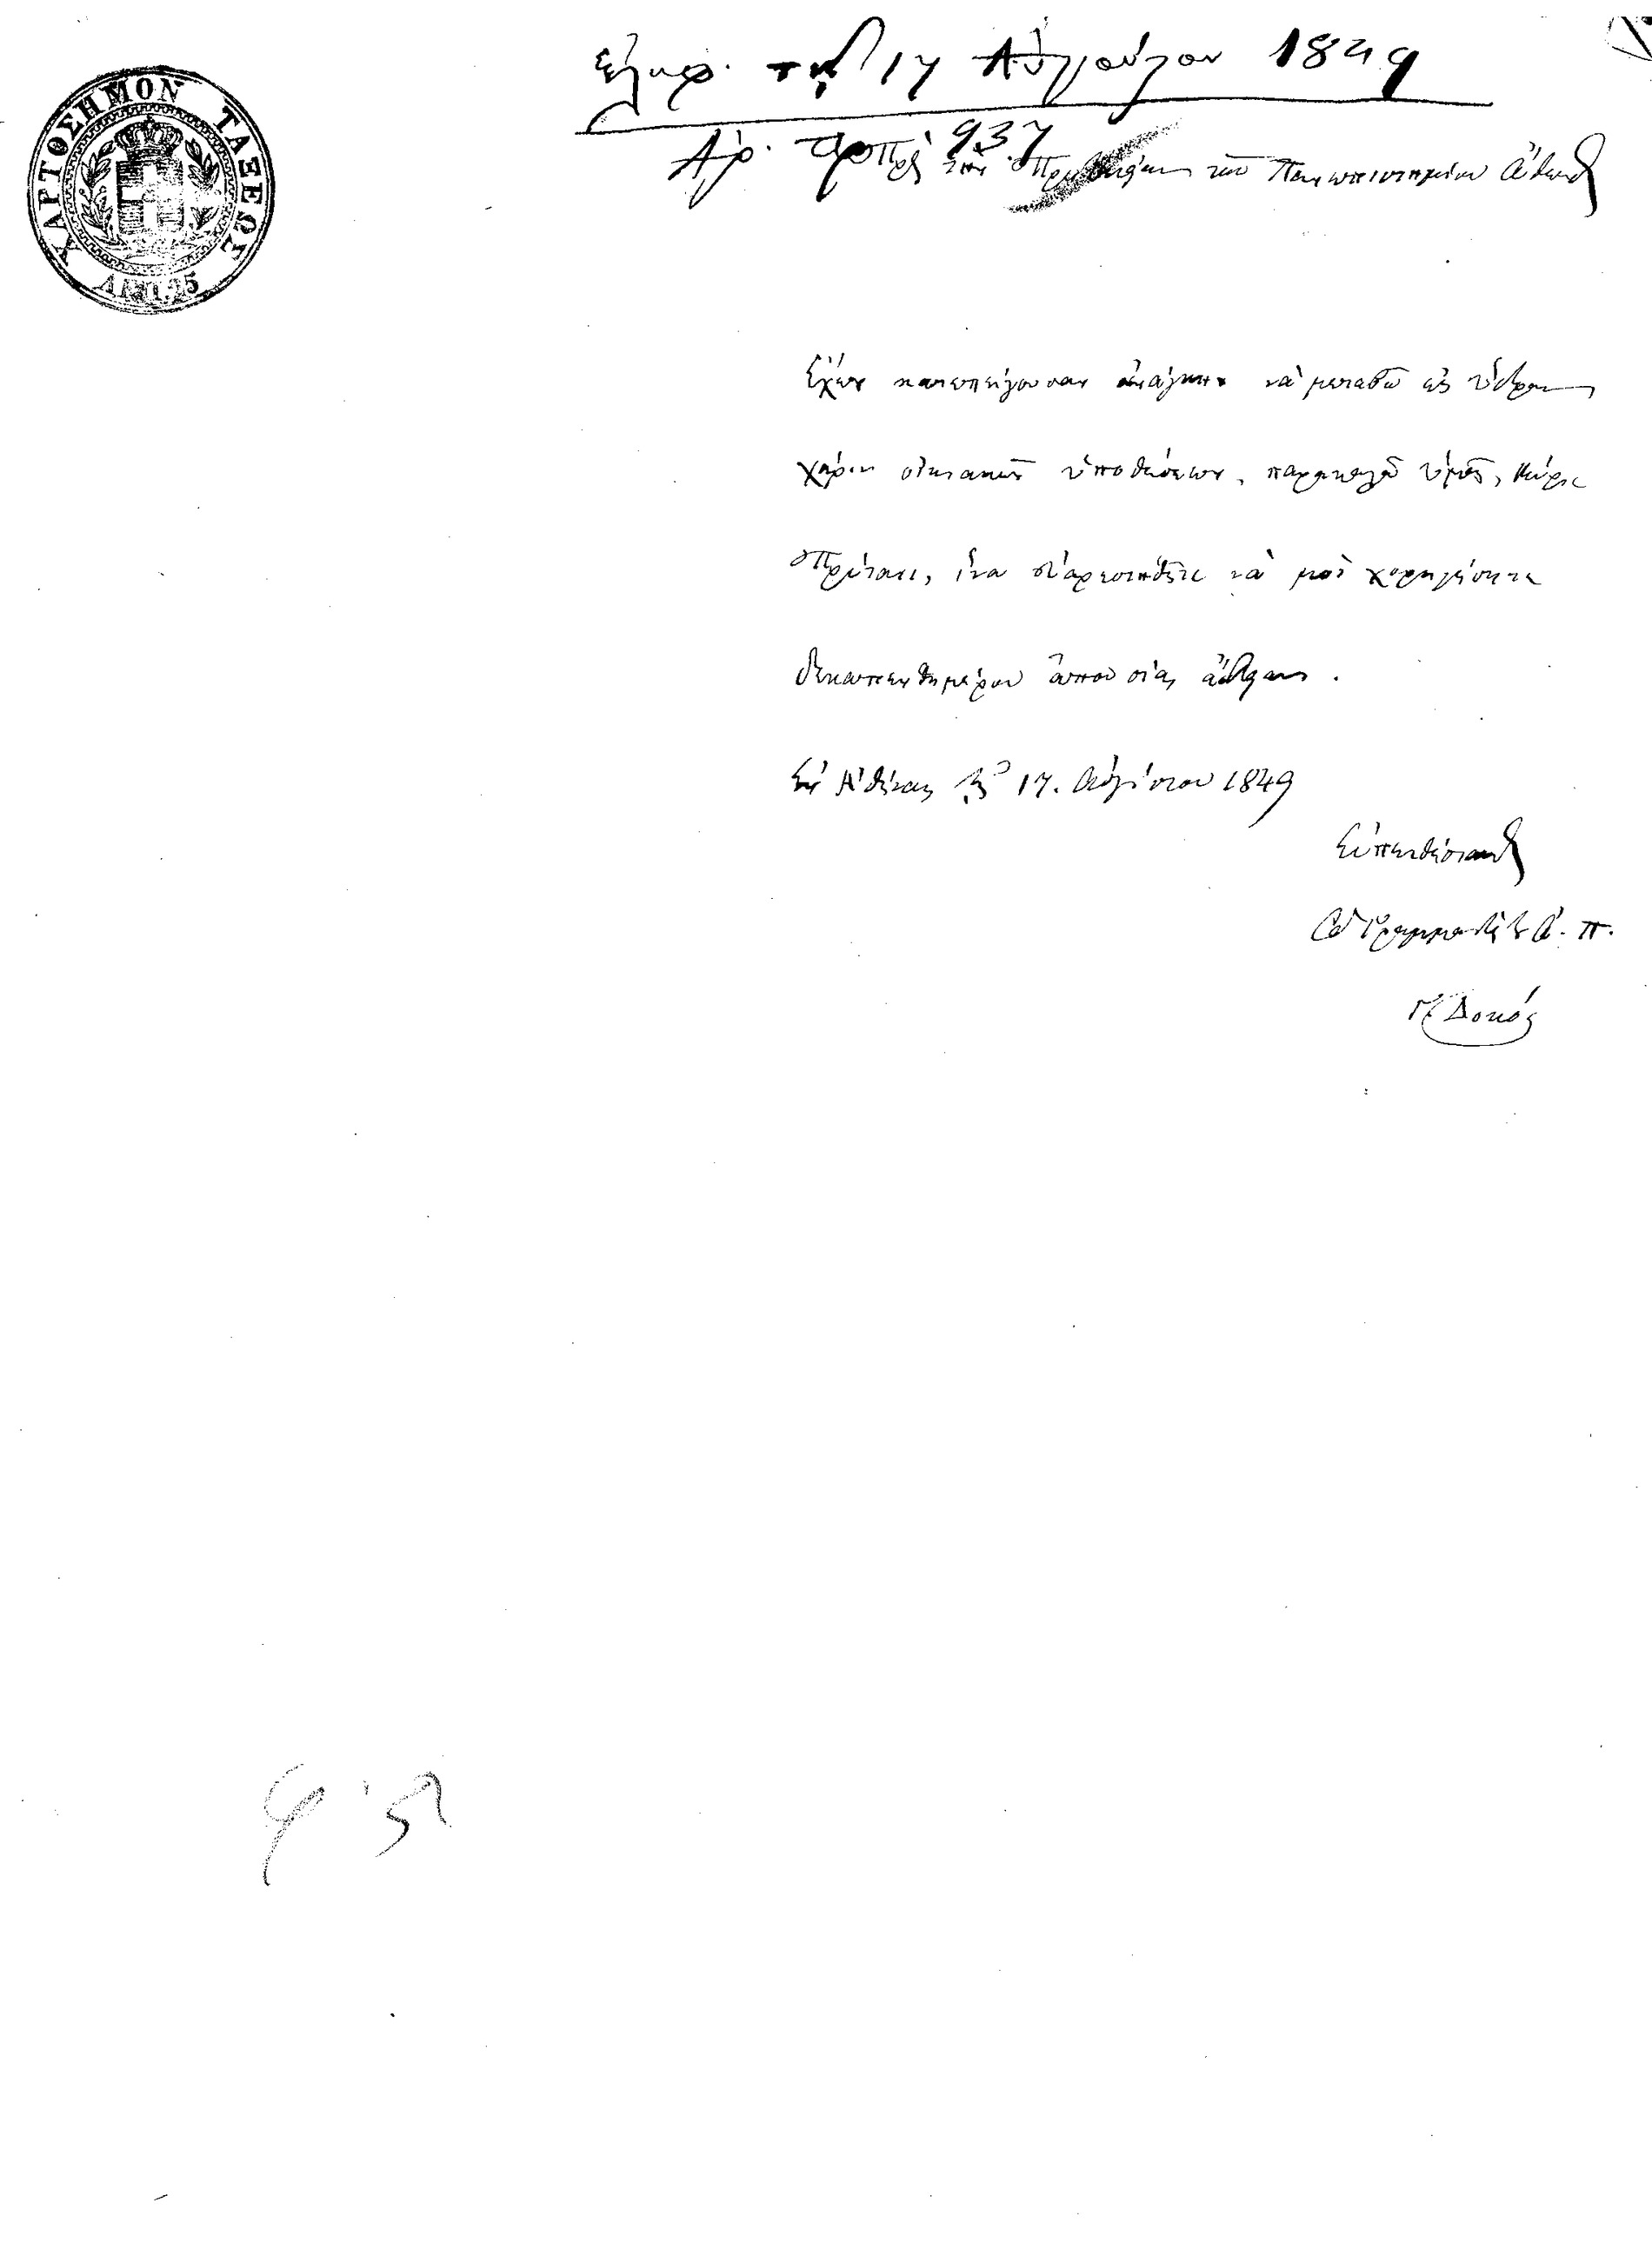 ΧΑΡΤΟΣΗΜΟΝ ΤΑΞΕΩΣ
ΛΕΠ. 25
Ελήφ. τῇ 17 Αὐγούστου 1849
Ἀρ. πρ. 937
Πρὸς τὴν Πρυτανείαν τοῦ Πανεπιστημίου Ὄθωνος
Ἔχων κατεπείγουσαν ἀνάγκην νὰ μεταβῶ εἰς Ὕδραν
χάριν οἰκιακῶν ὑποθέσεων, παρακαλῶ ὑμᾶς, Κύριε
Πρύτανι, ἵνα εὐαρεστηθῆτε νὰ μοὶ χορηγήσητε
δεκαπενθημέρου ἀπουσίας ἄδειαν.
Ἐν Ἀθήναις τῇ 17. Αὐγούστου 1849
Εὐπειθέστατος
Ὁ Γραμματεὺς τοῦ Ὀ. Π.
Δοκός